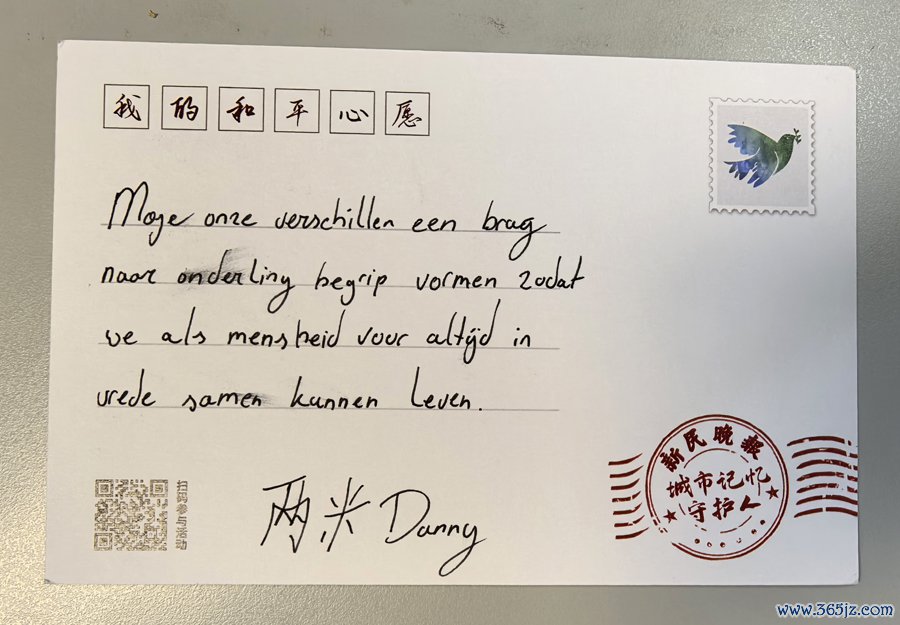 我的和平心愿
Moge onze verschillen een brug
naar onderling begrip vormen zodat
we als mensheid voor altijd in
vrede samen kunnen leven.
扫码参与活动
两米 Danny
新民晚报
城市记忆
守护人
www.365jz.com